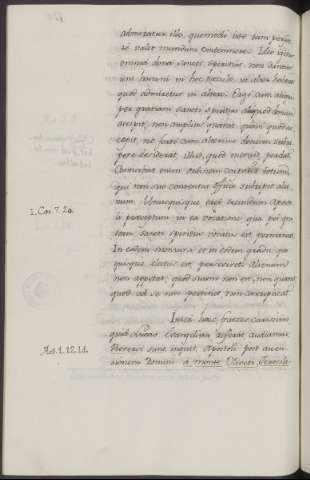 admiratur ille, quomodo iste tam perfec-
te valet mundum contemnere. Ideo igitur
omnia dona sancti spiritus non dantur
uni homini in hoc saeculo, ut alter habeat
quod admiretur in altero. Ergo cum aliquis
per gratiam sancti spiritus aliquod donum
accipit, non amplius quaerat quam quod ac-
cepit, ne forte cum alterius donum subri-
pere desiderat, illud, quod meruit, perdat.
Conturbat enim ordinem corporis totum,
qui non suo contentus officio subripit alie-
num. Unusquisque ergo secundum Aposto-
1. Cor. 7. 20.
li praeceptum in ea vocatione, qua per gra-
tiam sancti spiritus vocatus est, permaneat.
In eadem mensura et in eodem gradu, quo
quisque electus est, perseveret. Alienum
non appetat, quod suum non est, non quaerat
quod ad se non pertinet, non concupiscat.
Inter haec, fratres carissimi
quid Lucas Evangelista referat audiamus.
Act. 1. 12. 14.
Reversi sunt, inquit, Apostoli post ascen-
sionem Domini a monte Oliveti, Jerosoly-